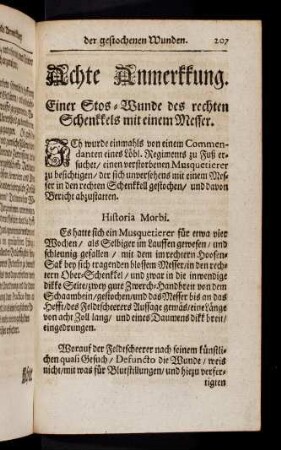 der gestochenen Wunden. 207
Achte Anmerkkung.
Einer Stos-Wunde des rechten
Schenkkels mit einem Messer.
ICh wurde einmahls von einem Commen-
danten eines Löbl. Regiments zu Fuß er-
suchet / einen verstorbenen Musquetierer
zu besichtigen / der sich unversehens mit einem Mes-
ser in den rechten Schenkkell gestochen / und davon
Bericht abzustatten.
Historia Morbi.
Es hatte sich ein Musquetierer für etwa vier
Wochen / als Selbiger im Lauffen gewesen / und
schleunig gefallen / mit dem im rechtern Hoosen-
Sak bey sich tragenden blossem Messer / in den rech-
tern Ober-Schenkkel / und zwar in die inwendige
dikke Seite / zwey gute Zwerch-Handbreit von dem
Schaambein / gestochen / und das Messer bis an das
Hefft / des Feldtscheerers Aussage gemäs / eine Längs
von acht Zoll lang / und eines Daumens dikk breit /
eingedrungen.
Worauf der Feldtscheerer nach seinem künstli-
chen quasi Gesuch / Defuncto die Wunde / weis
nicht / mit was für Blutstillungen / und hiezu verfer-
tigten